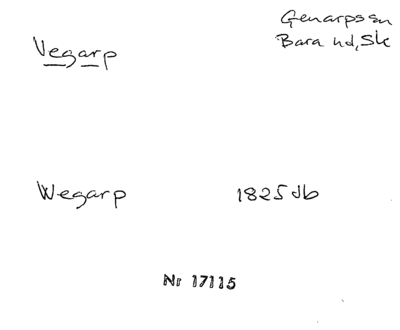 Vegarp
Genarps sn
Bara hd, Sk
Wegarp 1825 db
Nr 17115